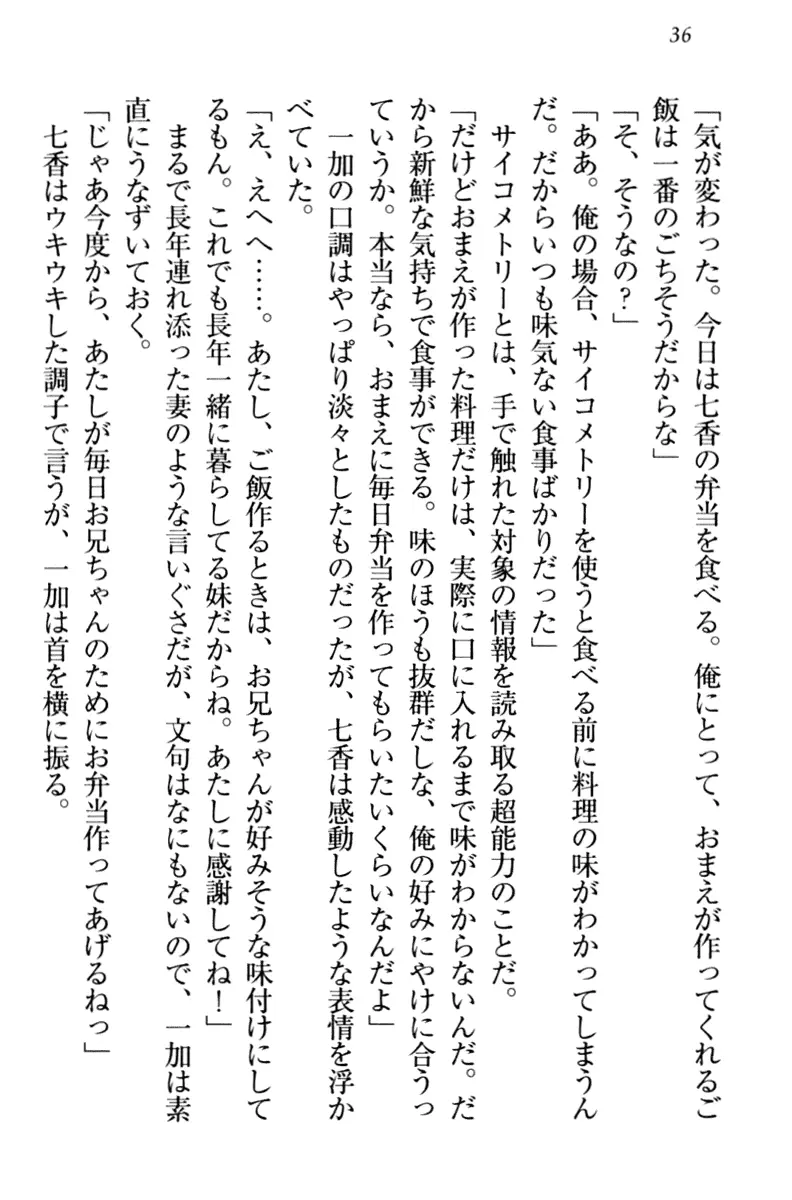 36
「気が変わった。今日は七香の弁当を食べる。俺にとって、おまえが作ってくれるご
飯は一番のごちそうだからな」
「そ、そうなの?」
「ああ。俺の場合、サイコメトリーを使うと食べる前に料理の味がわかってしまうん
だ。だからいつも味気ない食事ばかりだった」
サイコメトリーとは、手で触れた対象の情報を読み取る超能力のことだ。
「だけどおまえが作った料理だけは、実際に口に入れるまで味がわからないんだ。だ
から新鮮な気持ちで食事ができる。味のほうも抜群だしな、俺の好みにやけに合うっ
ていうか。本当なら、おまえに毎日弁当を作ってもらいたいくらいなんだよ」
一加の口調はやっぱり淡々としたものだったが、七香は感動したような表情を浮か
べていた。
「え、えへへ……。あたし、ご飯作るときは、お兄ちゃんが好みそうな味付けにして
るもん。これでも長年一緒に暮らしてる妹だからね。あたしに感謝してね!」
まるで長年連れ添った妻のような言いぐさだが、文句はなにもないので、一加は素
直にうなずいておく。
「じゃあ今度から、あたしが毎日お兄ちゃんのためにお弁当作ってあげるねっ」
七香はウキウキした調子で言うが、一加は首を横に振る。